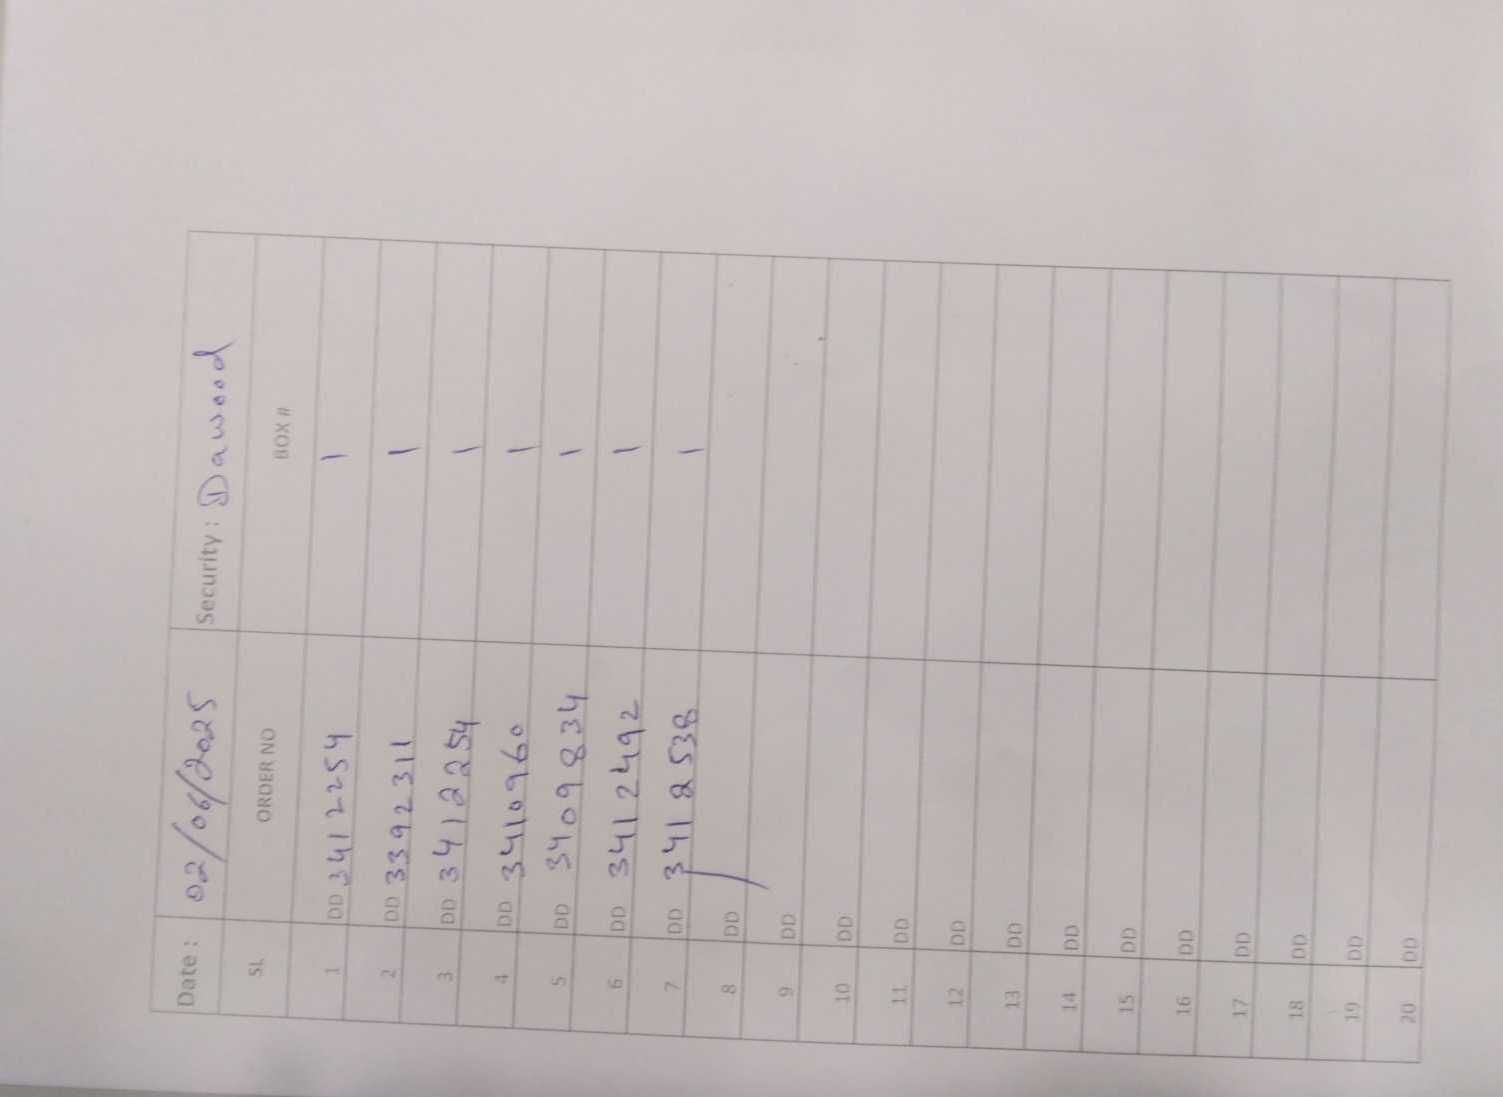 Date : 02/06/2025 Security : Dawood
SL ORDER NO BOX #
1 DD 3412254 1
2 DD 3392311 1
3 DD 3412254 1
4 DD 3410960 1
5 DD 3409834 1
6 DD 3412492 1
7 DD 3412538 1
8 DD
9 DD
10 DD
11 DD
12 DD
13 DD
14 DD
15 DD
16 DD
17 DD
18 DD
19 DD
20 DD